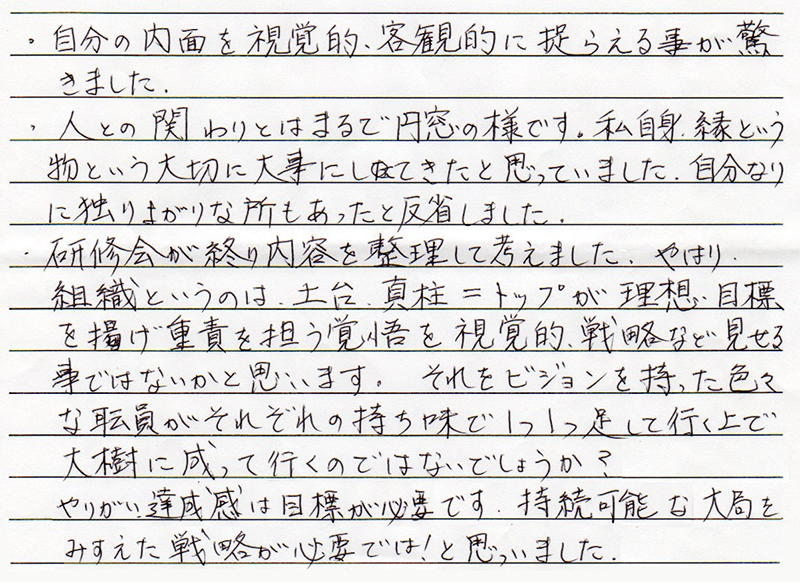 ・自分の内面を視覚的、客観的に捉らえる事が驚
きました.
・人との関わりとはまるで円窓の様です。私自身.縁という
物という大切に大事にしてきたと思っていました.自分なり
に独りよがりな所もあったと反省しました.
・研修会が終り内容を整理して考えました.やはり.
組織というのは.土台.真柱=トップが理想.目標
を掲げ重責を担う覚悟を視覚的、戦略など見せる
事ではないかと思います。それをビジョンを持った色々
な職員がそれぞれの持ち味で1つ1つ足して行く上で
大樹に成って行くのではないでしょうか?
やりがい.達成感は目標が必要です.持続可能な大局を
みすえた戦略が必要では!と思っいました.